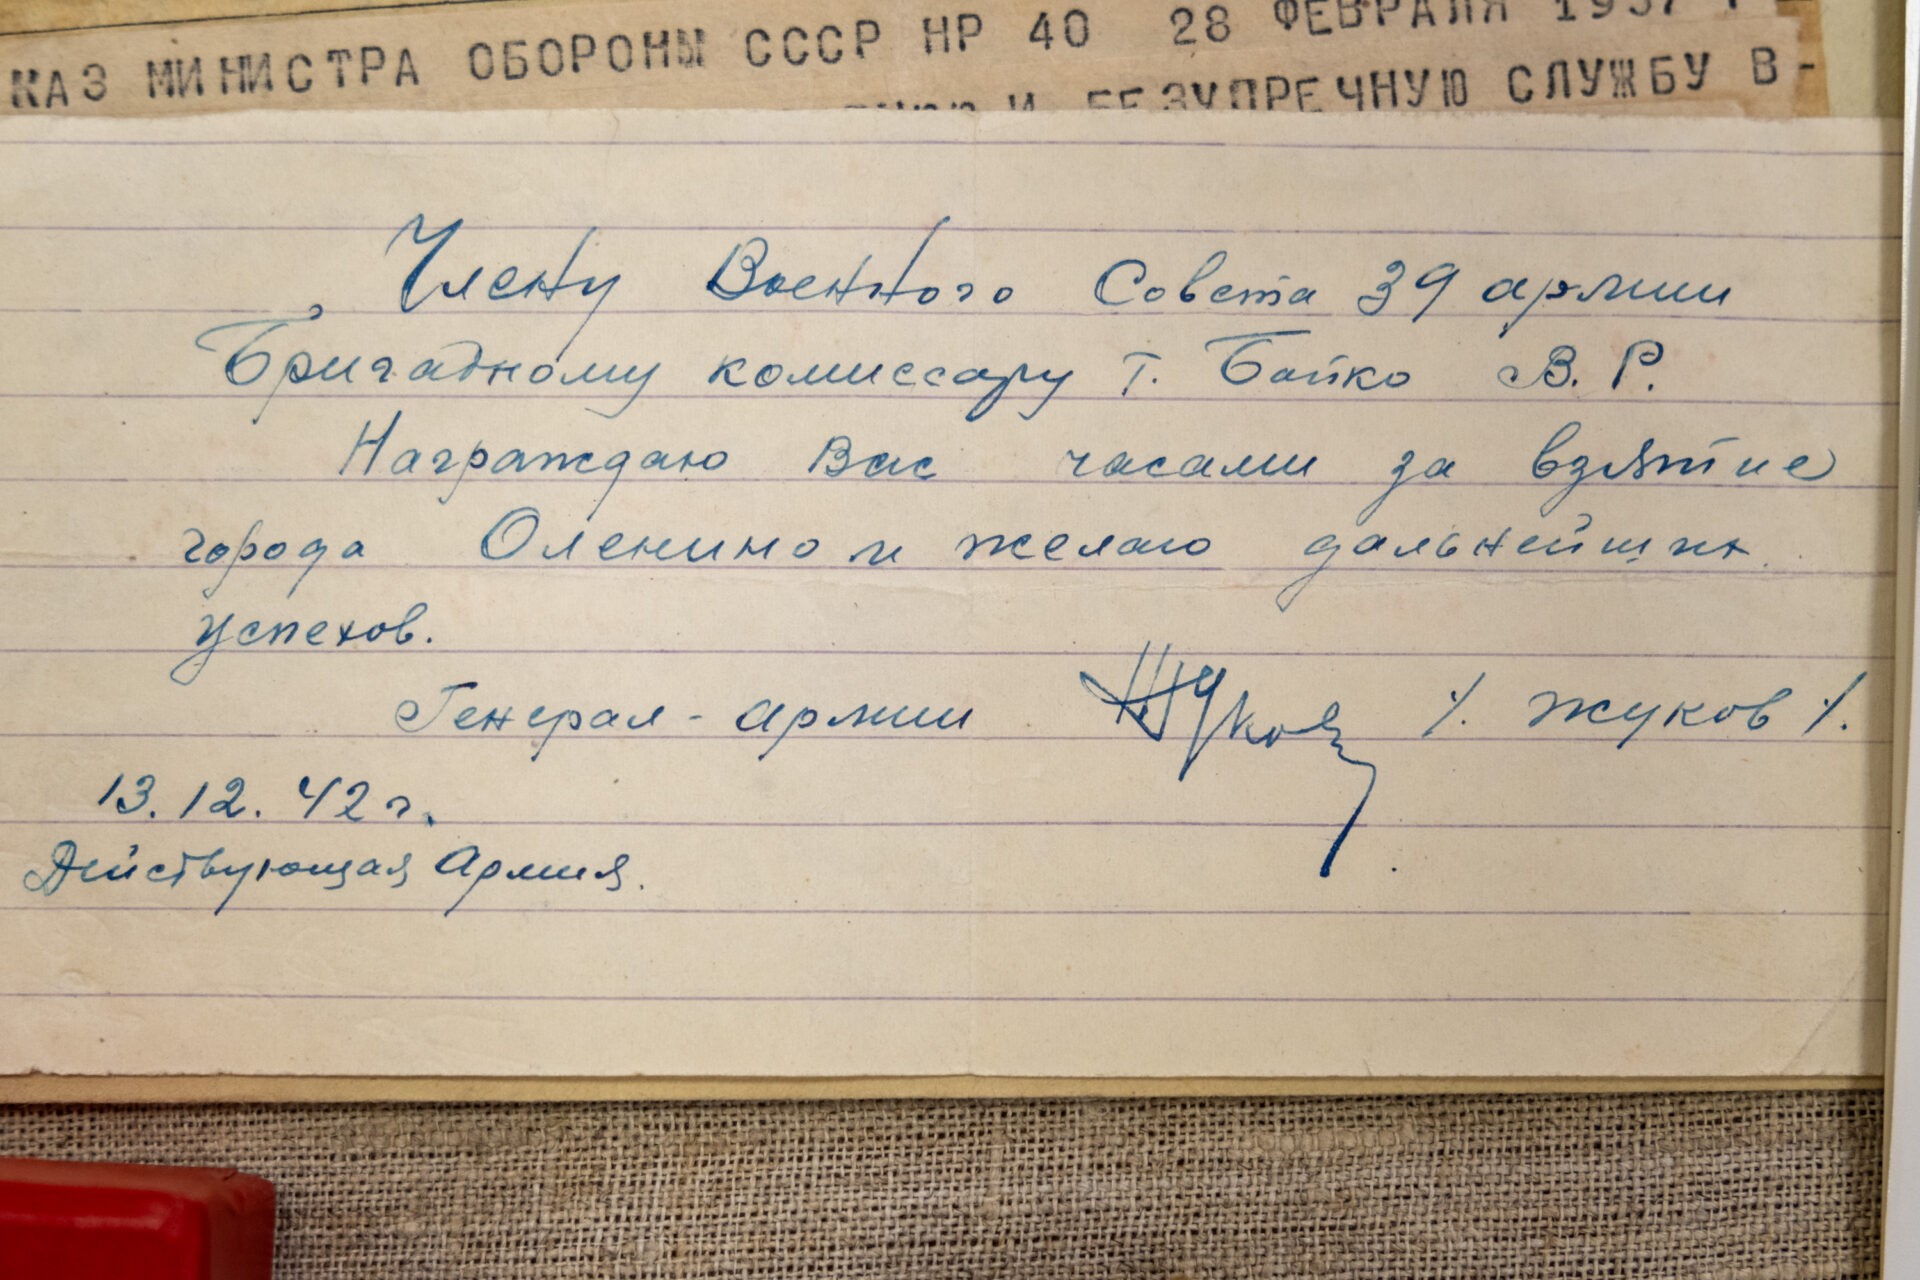 КАЗ МИНИСТРА ОБОРОНЫ СССР НР 40 28 ФЕВРАЛЯ 1957 Г
И БЕЗУПРЕЧНУЮ СЛУЖБУ В-
Члену Военного Совета 39 армии
Бригадному комиссару т. Бойко В. Р.
Награждаю Вас часами за взятие
города Оленино и желаю дальнейших
успехов.
Генерал-армии Жуков /. Жуков /.
13. 12. 42 г.
Действующая Армия.